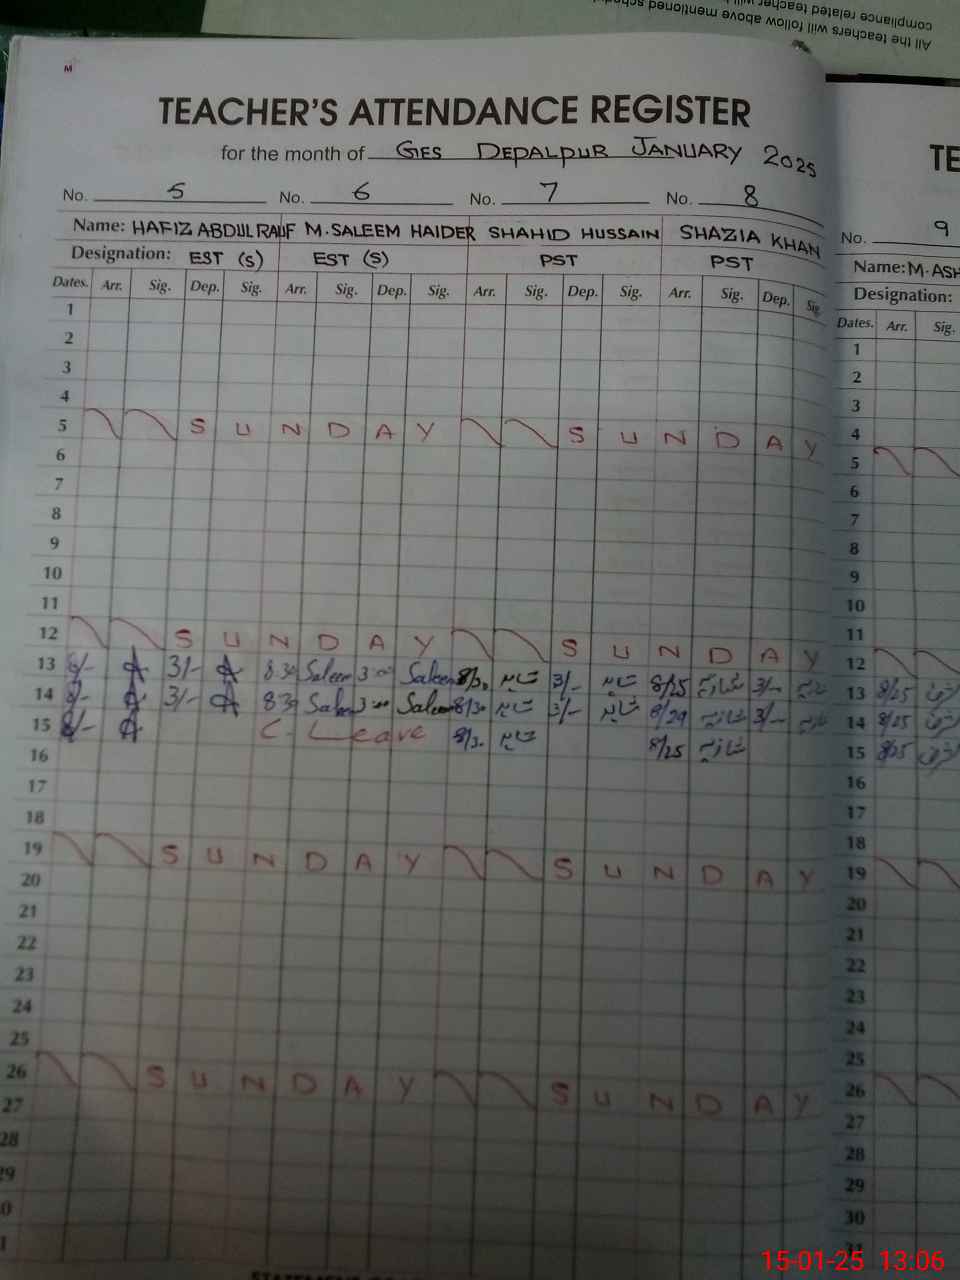 All the teachers will follow above mentioned
compliance related teacher will
M
TEACHER'S ATTENDANCE REGISTER
for the month of GES DEPALPUR JANUARY 2025
No. 5 No. 6 No. 7 No. 8
Name: HAFIZ ABDUL RAUF M. SALEEM HAIDER SHAHID HUSSAIN SHAZIA KHAN
Designation: EST (S) EST (S) PST PST
Dates. Arr. Sig. Dep. Sig. Arr. Sig. Dep. Sig. Arr. Sig. Dep. Sig. Arr. Sig. Dep. Sig.
1
2
3
4
5 SUNDAY SUNDAY
6
7
8
9
10
11
12 SUNDAY SUNDAY
13 8/- 3/- 8:30 Saleem 3:00 Saleem 8/30 شاہد 3/- شاہد 8/25 شازیہ 3/- شازیہ
14 8/- 3/- 8:30 Saleem 3:00 Saleem 8/30 شاہد 3/- شاہد 8/29 شازیہ 3/- شازیہ
15 8/- C. Leave 8/30 شاہد 8/25 شازیہ
16
17
18
19 SUNDAY SUNDAY
20
21
22
23
24
25
26 SUNDAY SUNDAY
27
28
29
0
1
TE
No. 9
Name: M. ASH
Designation:
Dates. Arr. Sig.
1
2
3
4
5
6
7
8
9
10
11
12
13 8/25
14 8/25
15 8/25
16
17
18
19
20
21
22
23
24
25
26
27
28
29
30
31
15-01-25 13:06